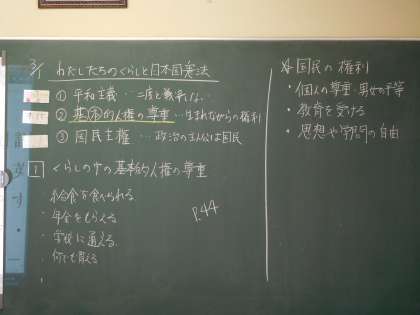 3/1 わたしたちのくらしと日本国憲法
① 平和主義 … 二度と戦争しない
② 基本的人権の尊重 … 生まれながらの権利
③ 国民主権 … 政治の主人公は国民
1 くらしの中の基本的人権の尊重
・給食が食べられる
・年金をもらえる
・学校に通える
・何でも買える
P.44
国民の権利
・個人の尊重・男女の平等
・教育を受ける
・思想や学問の自由